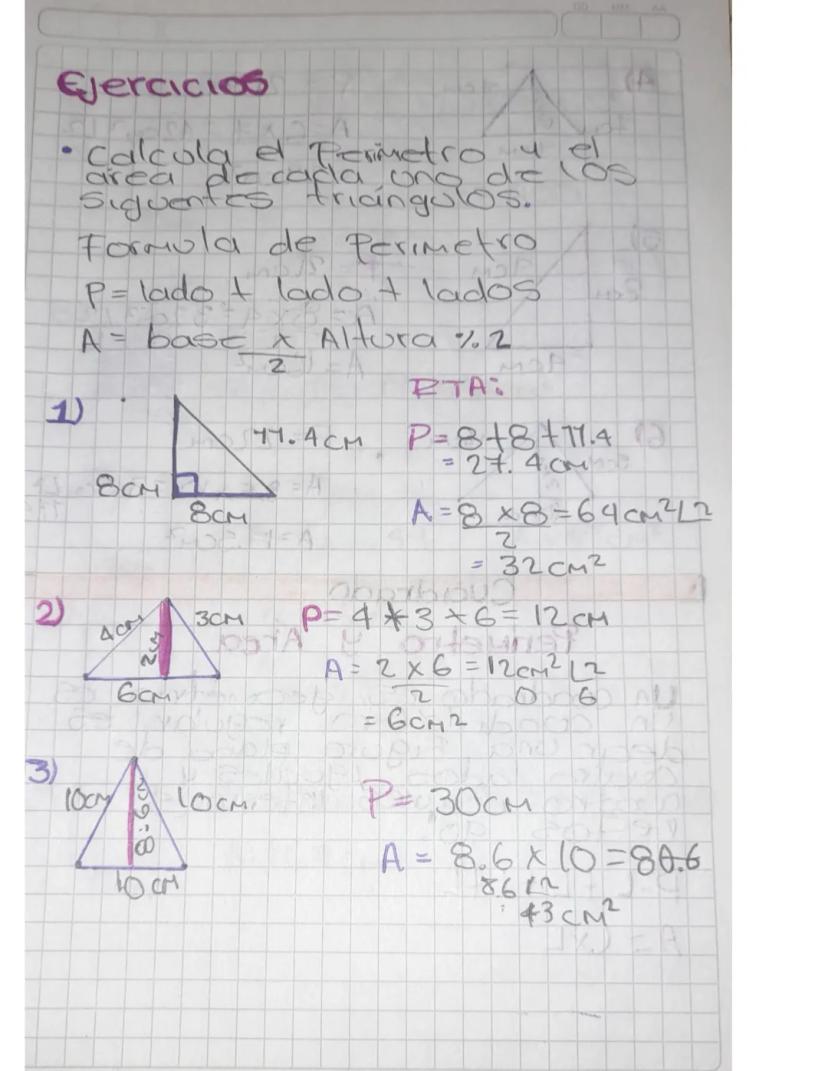 Ejercicios
• Calcula el Perimetro y el
área de cada uno de los
siguentes triángulos.
Formula de Perimetro
P= lado + lado + lados
A= base x Altura % 2
2
RTA:
1)
11.4cm
8cm
8cm
P= 8+8+11.4
= 27.4cm
A= 8 x8=64cm² 2
2
= 32cm²
2)
4cm
3cm
2cm
6cm
P= 4 + 3 + 6= 12cm
A= 2 x 6 =12cm² 2
2 0 6
= 6cm²
3)
10cm
10cm
8.6cm
10cm
P= 30cm
A= 8.6 x 10 =
86 2
43cm²